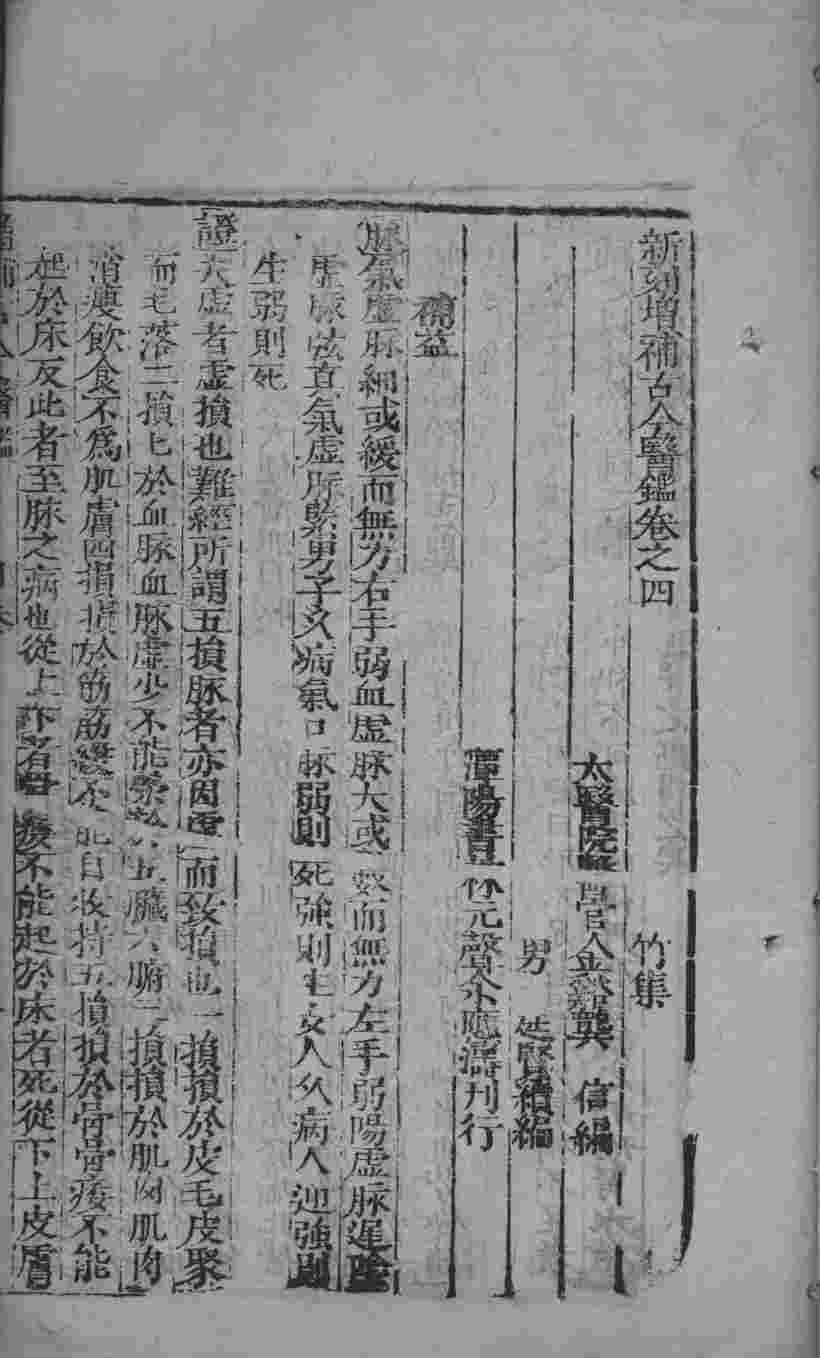 新刻增補古今醫鑑卷之四
竹集
太醫院醫官金谿龔　信編
男　廷賢續編
潭陽書林元聲余應灝刊行
補益
脉氣虛脉細或緩而無力右手弱血虛脉大或數而無力左手弱陽虛脉遲陰
虛脉弦真氣虛脉緊男子久病氣口脉弱則死強則生女人久病人迎強則
生弱則死
證夫虛者虛損也難經所謂五損脉者亦因虛而致損也一損損於皮毛皮聚
而毛落二損損於血脉血脉虛少不能榮於五臟六腑三損損於肌肉肌肉
消瘦飲食不為肌膚四損損於筋筋緩不能自收持五損損於骨骨痿不能
起於床反此者至脉之病也從上下者骨痿不能起於床者死從下上皮膚